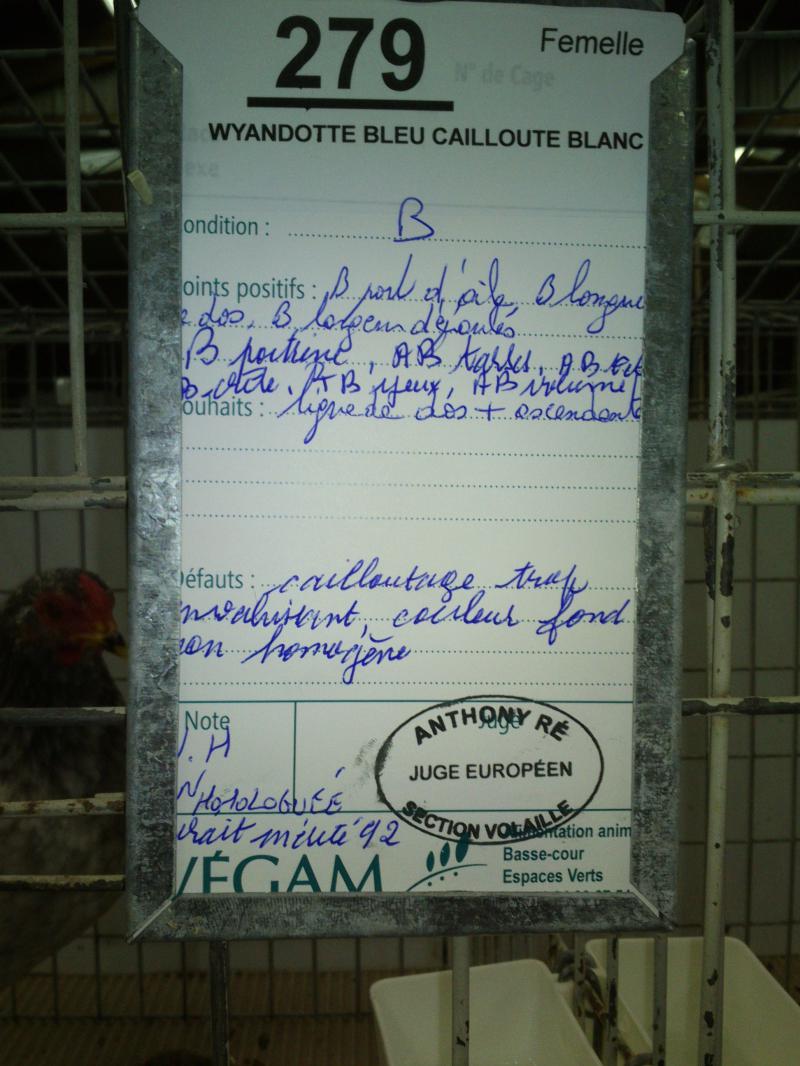 279
Femelle
N° de Cage
WYANDOTTE BLEU CAILLOUTE BLANC
exe
ondition : B
oints positifs : B port d'aile, B longue
e dos, B largeur d'épaules
B poitrine, AB tarses, AB
B crête, AB yeux, AB volume,
ouhaits : ligne de dos + ascendante
éfauts : cailloutage trop
nvahissant, couleur fond
non homogène
Note
Juge
. H
ANTHONY RÉ
JUGE EUROPÉEN
SECTION VOLAILLE
N HOMOLOGUÉÉ
rait mérité 92
VÉGAM
Alimentation anim
Basse-cour
Espaces Verts